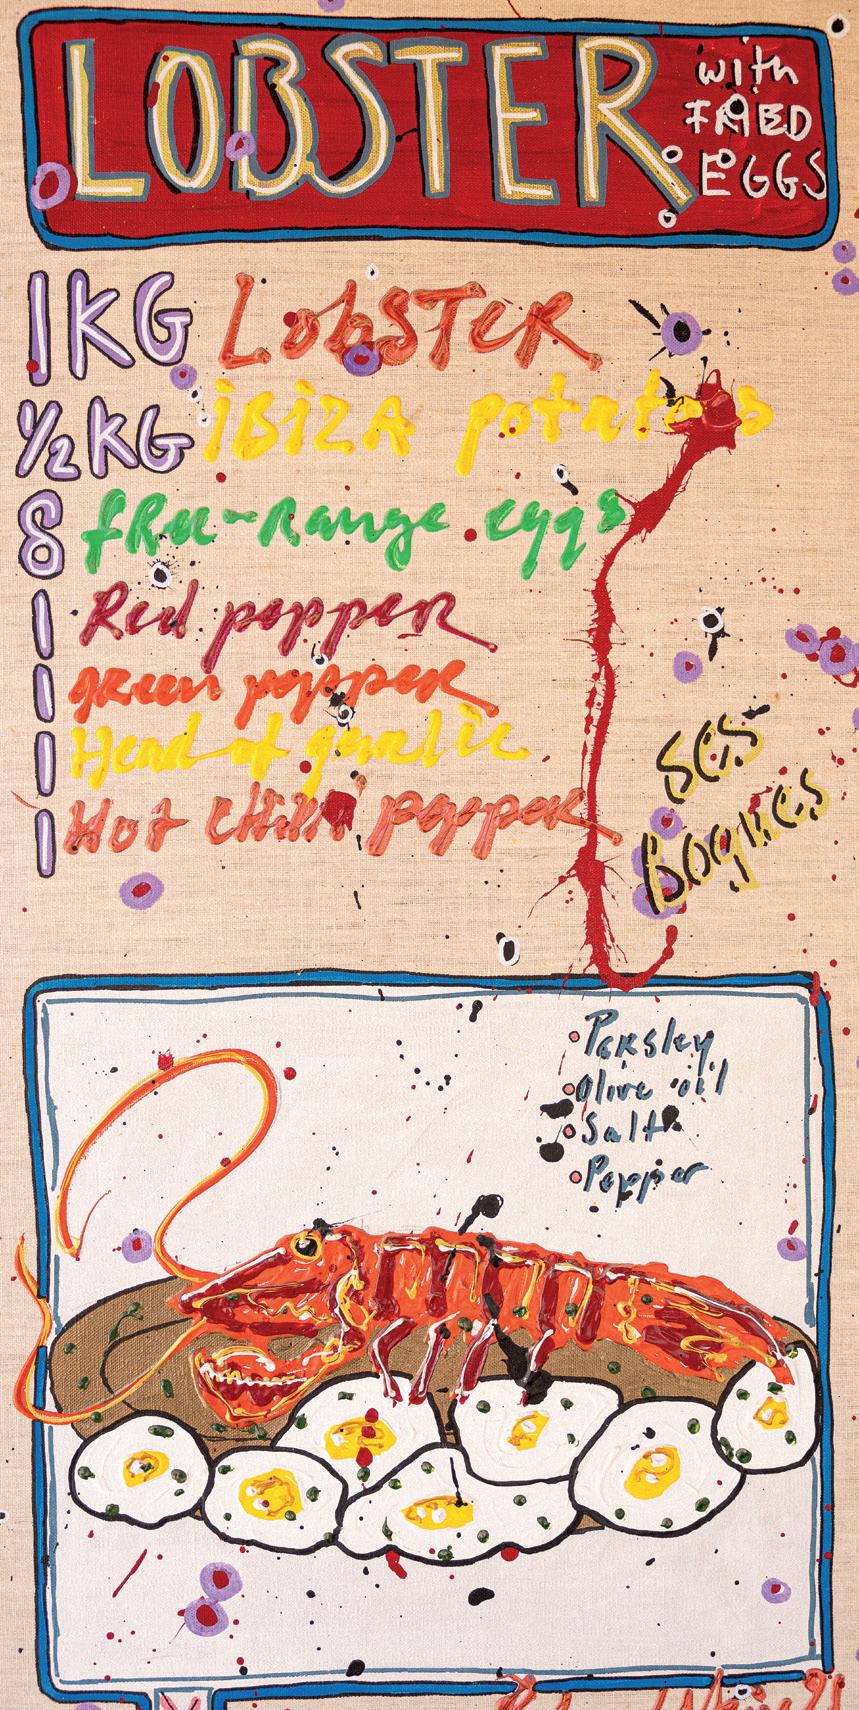 LOBSTER
with
FRIED
EGGS
1KG LobSTER
½KG iBiZA potatoes
8 fRee-Range eggs
1 Red pepper
1 green pepper
1 Head of garlic
1 Hot chilli pepper
SES
Boqües
Parsley
Olive oil
Salt
Pepper